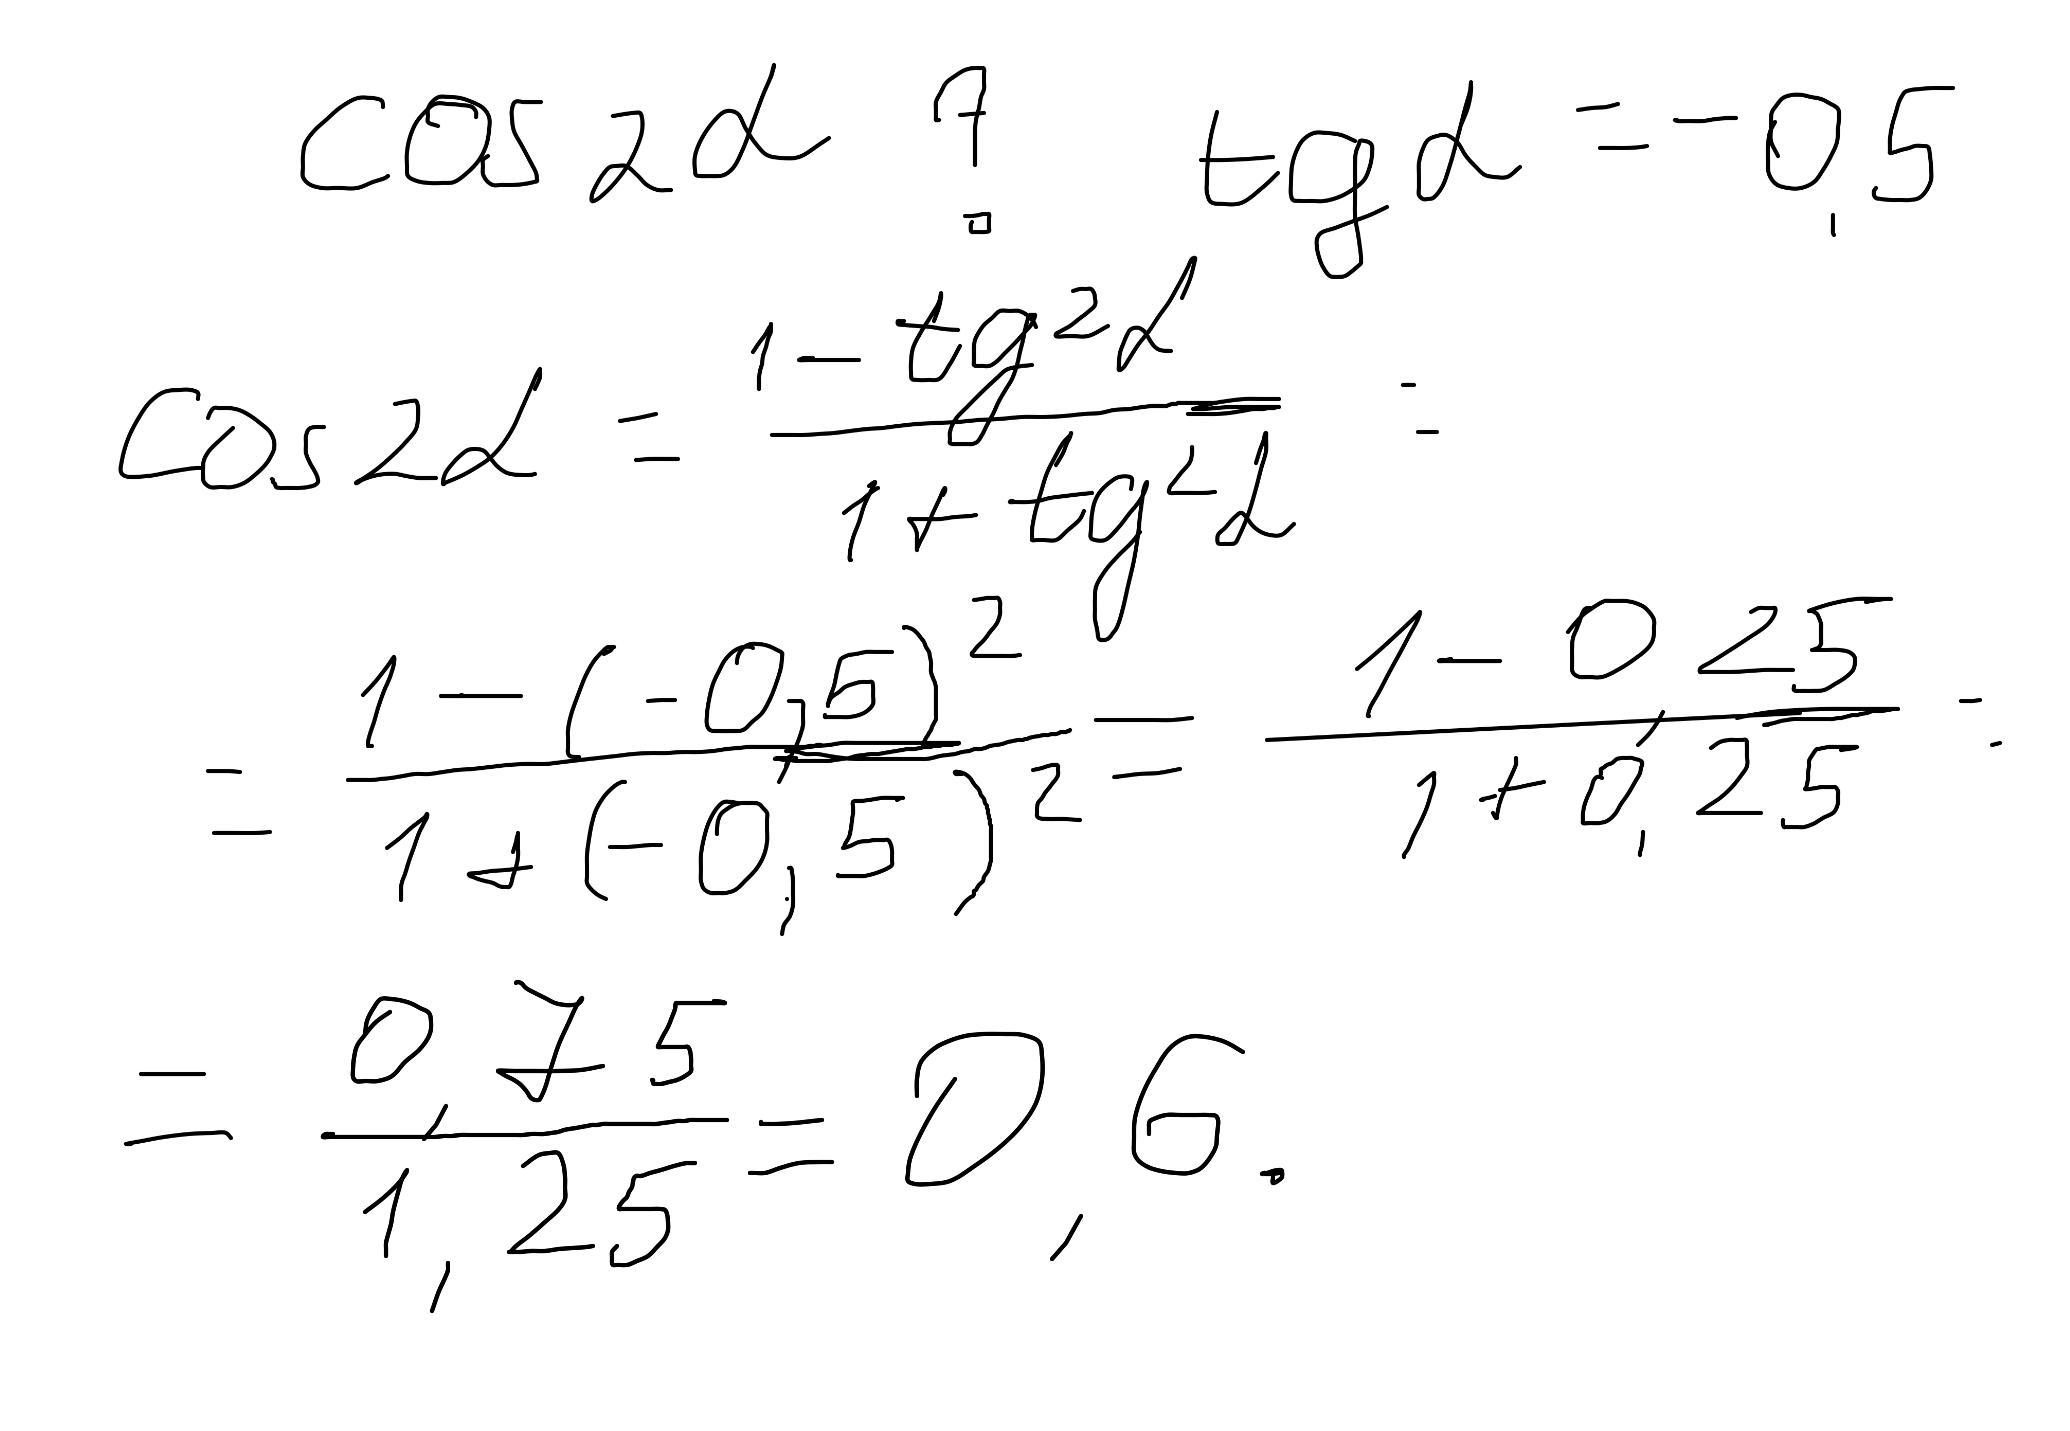 cos 2α ? tg α = -0,5
cos 2α = (1 - tg²α)/(1 + tg²α) =
= (1 - (-0,5)²)/(1 + (-0,5)²) = (1 - 0,25)/(1 + 0,25) =
= 0,75/1,25 = 0,6.